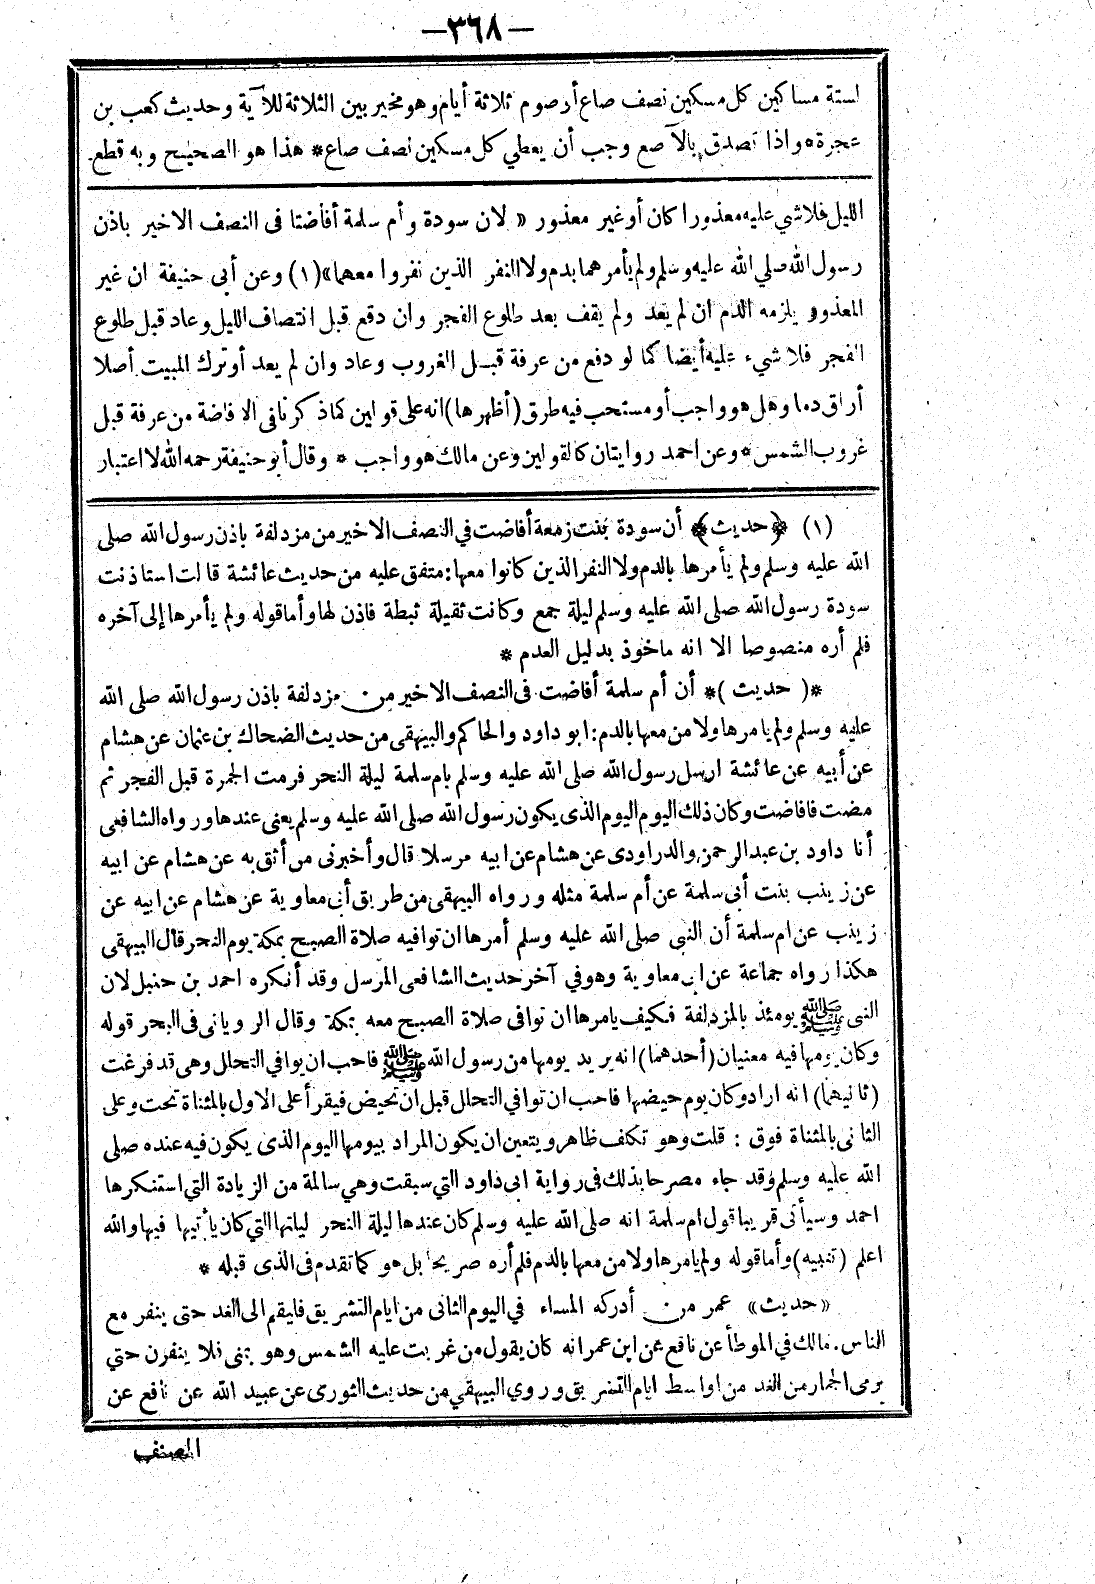 —٣٦٨—
لستة مساكين كل مسكين نصف صاع أو صوم ثلاثة أيام وهو مخير بين الثلاثة للآية وحديث كعب بن
عجرة * واذا تصدق بالآصع وجب أن يعطي كل مسكين نصف صاع * هذا هو الصحيح وبه قطع
الليل فلا شي عليه معذورا كان أو غير معذور « لان سودة وأم سلمة أفاضتا فى النصف الاخير باذن
رسول الله صلي الله عليه وسلم ولم يأمرهما بدم ولا النفر الذين نفروا معهما» (١) وعن أبى حنيفة ان غير
المعذور يلزمه الدم ان لم يعد ولم يقف بعد طلوع الفجر وان دفع قبل انتصاف الليل وعاد قبل طلوع
الفجر فلا شيء عليه أيضا كما لو دفع من عرفة قبل الغروب وعاد وان لم يعد أو ترك المبيت أصلا
أراق دما وهل هو واجب أو مستحب فيه طرق (أظهرها) انه على قولين كما ذكرنا فى الافاضة من عرفة قبل
غروب الشمس * وعن احمد روايتان كالقولين وعن مالك هو واجب * وقال أبو حنيفة رحمه الله لا اعتبار
(١) ﴿حديث﴾ أن سودة بنت زمعة أفاضت في النصف الاخير من مزدلفة باذن رسول الله صلى
الله عليه وسلم ولم يأمرها بالدم ولا النفر الذين كانوا معها : متفق عليه من حديث عائشة قالت استاذنت
سودة رسول الله صلى الله عليه وسلم ليلة جمع وكانت ثقيلة ثبطة فاذن لها وأما قوله ولم يأمرها إلى آخره
فلم أره منصوصا الا انه ماخوذ بدليل العدم *
*( حديث )* أن أم سلمة أفاضت فى النصف الاخير من مزدلفة باذن رسول الله صلى الله
عليه وسلم ولم يامرها ولا من معها بالدم : ابو داود والحاكم والبيهقى من حديث الضحاك بن عثمان عن هشام
عن أبيه عن عائشة ارسل رسول الله صلى الله عليه وسلم بام سلمة ليلة النحر فرمت الجمرة قبل الفجر ثم
مضت فافاضت وكان ذلك اليوم اليوم الذى يكون رسول الله صلى الله عليه وسلم يعنى عندها ورواه الشافعى
أنا داود بن عبد الرحمن والدراودى عن هشام عن ابيه مرسلا قال وأخبرنى من أثق به عن هشام عن ابيه
عن زينب بنت أبى سلمة عن أم سلمة مثله ورواه البيهقى من طريق أبى معاوية عن هشام عن ابيه عن
زينب عن ام سلمة أن النبى صلى الله عليه وسلم أمرها ان توافيه صلاة الصبح بمكة يوم النحر قال البيهقى
هكذا رواه جماعة عن ابى معاوية وهو في آخر حديث الشافعى المرسل وقد أنكره احمد بن حنبل لان
النبى ﷺ يومئذ بالمزدلفة فكيف يامرها ان توافى صلاة الصبح معه بمكة وقال الرويانى فى البحر قوله
وكان يومها فيه معنيان (أحدهما) انه يريد يومها من رسول الله ﷺ فاحب ان يوافي التحلل وهى قد فرغت
(ثانيهما) انه اراد وكان يوم حيضها فاحب ان توافي التحلل قبل ان تحيض فيقرأ على الاول بالمثناة تحت وعلى
الثانى بالمثناة فوق : قلت وهو تكلف ظاهر ويتعين ان يكون المراد بيومها اليوم الذى يكون فيه عنده صلى
الله عليه وسلم وقد جاء مصرحا بذلك فى رواية ابى داود التي سبقت وهي سالمة من الزيادة التي استنكرها
احمد وسيأتى قريبا قول ام سلمة انه صلى الله عليه وسلم كان عندها ليلة النحر ليلتها التي كان يأتيها فيها والله
اعلم (تنبيه) وأما قوله ولم يامرها ولا من معها بالدم فلم أره صريحا بل هو كما تقدم فى الذى قبله *
«حديث» عمر من أدركه المساء في اليوم الثانى من ايام التشريق فليقم الى الغد حتى ينفر مع
الناس . مالك في الموطأ عن نافع عن ابن عمر انه كان يقول من غربت عليه الشمس وهو بمنى فلا ينفرن حتي
يرمى الجمار من الغد من اواسط ايام التشريق وروي البيهقي من حديث الثورى عن عبيد الله عن نافع عن
المصنف